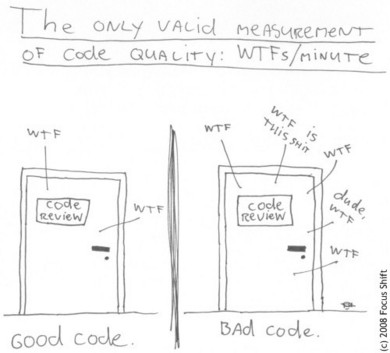 The ONLY VALID MEASUREMENT
OF Code QUALITY: WTFs/MINUTE
WTF
Code
REVIEW
WTF
Good code.
WTF
WTF IS
THIS SHIT
WTF
Code
REVIEW
dude,
WTF
WTF
BAd code.
(c) 2008 Focus Shift